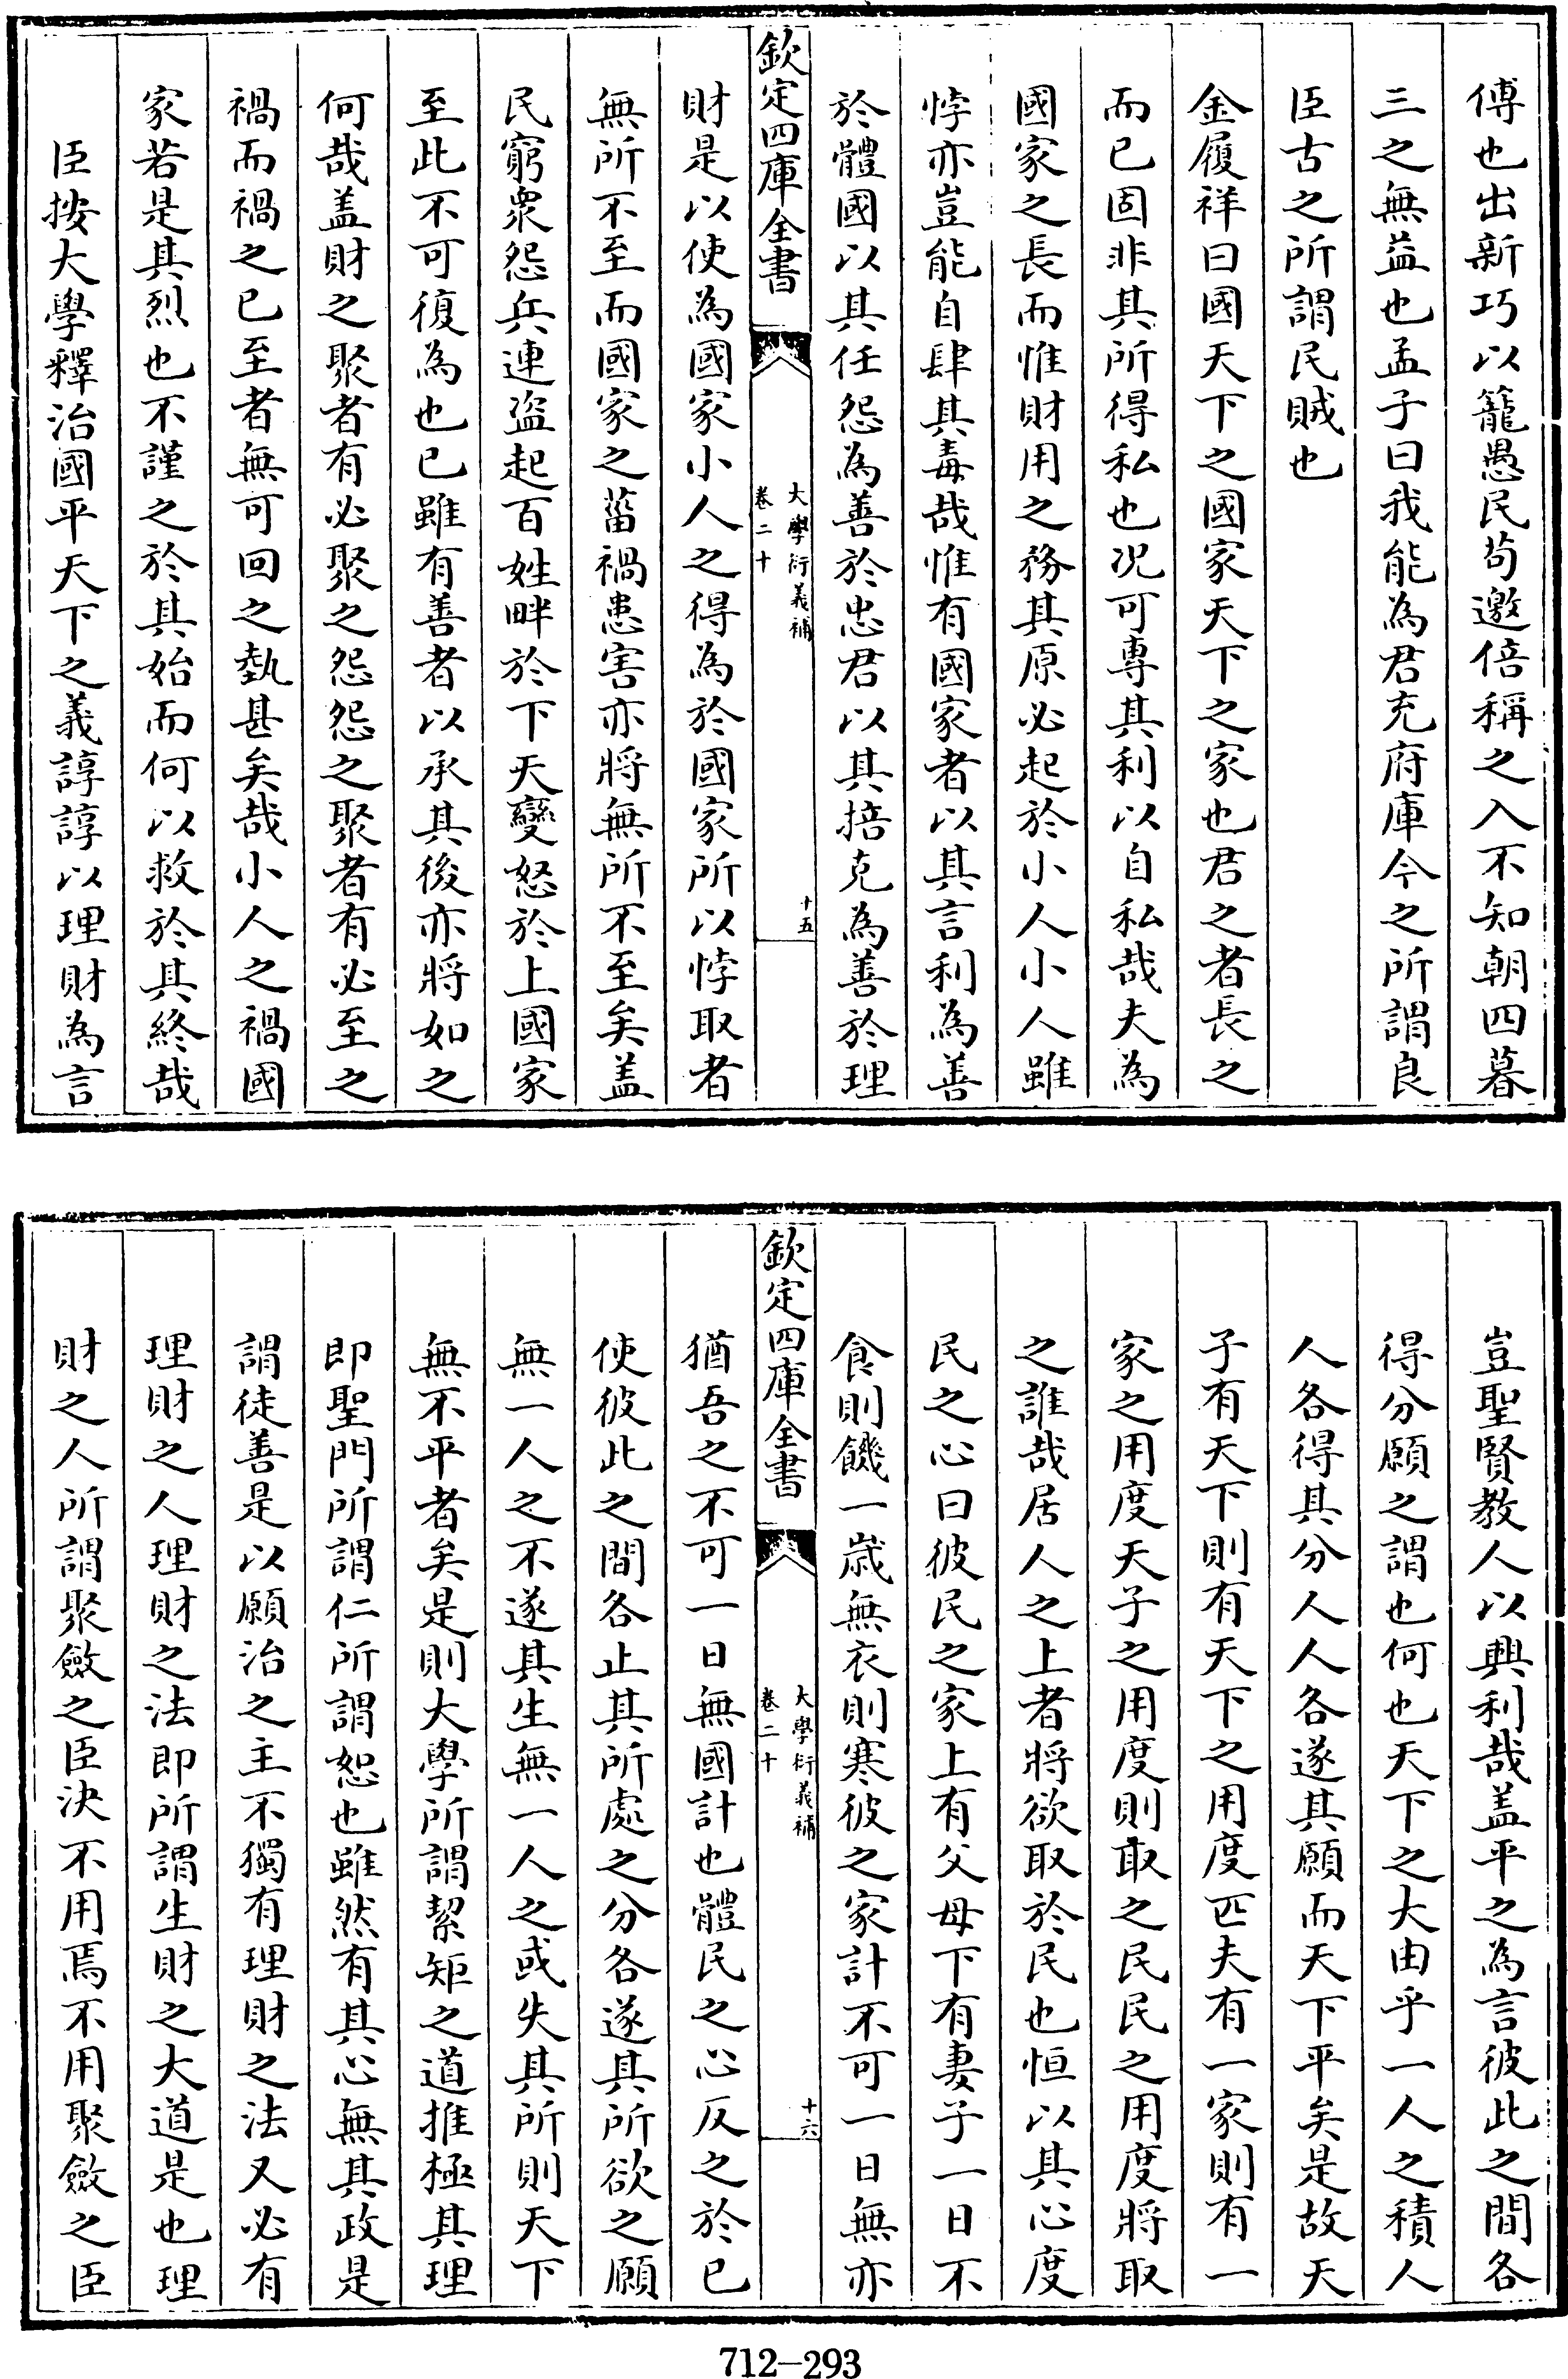 傅也出新巧以籠愚民苟邀倍稱之入不知朝四暮
三之無益也孟子曰我能為君充府庫今之所謂良
臣古之所謂民賊也
金履祥曰國天下之國家天下之家也君之者長之
而已固非其所得私也况可專其利以自私哉夫為
國家之長而惟財用之務其原必起於小人小人雖
悖亦豈能自肆其毒哉惟有國家者以其言利為善
於體國以其任怨為善於忠君以其掊克為善於理
欽定四庫全書
大學衍義補
卷二十
十五
財是以使為國家小人之得為於國家所以悖取者
無所不至而國家之菑禍患害亦將無所不至矣盖
民窮衆怨兵連盗起百姓畔於下天變怒於上國家
至此不可復為也已雖有善者以承其後亦將如之
何哉盖財之聚者有必聚之怨怨之聚者有必至之
禍而禍之已至者無可回之埶甚矣哉小人之禍國
家若是其烈也不謹之於其始而何以救於其終哉
臣按大學釋治國平天下之義諄諄以理財為言
豈聖賢教人以興利哉盖平之為言彼此之間各
得分願之謂也何也天下之大由乎一人之積人
人各得其分人人各遂其願而天下平矣是故天
子有天下則有天下之用度匹夫有一家則有一
家之用度天子之用度則取之民民之用度將取
之誰哉居人之上者將欲取於民也恒以其心度
民之心曰彼民之家上有父母下有妻子一日不
食則饑一歲無衣則寒彼之家計不可一日無亦
欽定四庫全書
大學衍義補
卷二十
十六
猶吾之不可一日無國計也體民之心反之於已
使彼此之間各止其所處之分各遂其所欲之願
無一人之不遂其生無一人之或失其所則天下
無不平者矣是則大學所謂絜矩之道推極其理
即聖門所謂仁所謂恕也雖然有其心無其政是
謂徒善是以願治之主不獨有理財之法又必有
理財之人理財之法即所謂生財之大道是也理
財之人所謂聚斂之臣決不用焉不用聚斂之臣
712-293